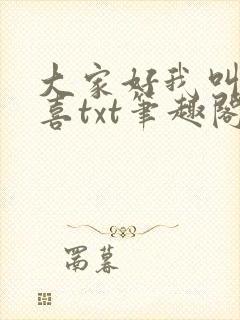 大家好我叫
喜txt笔趣阁
罱暮